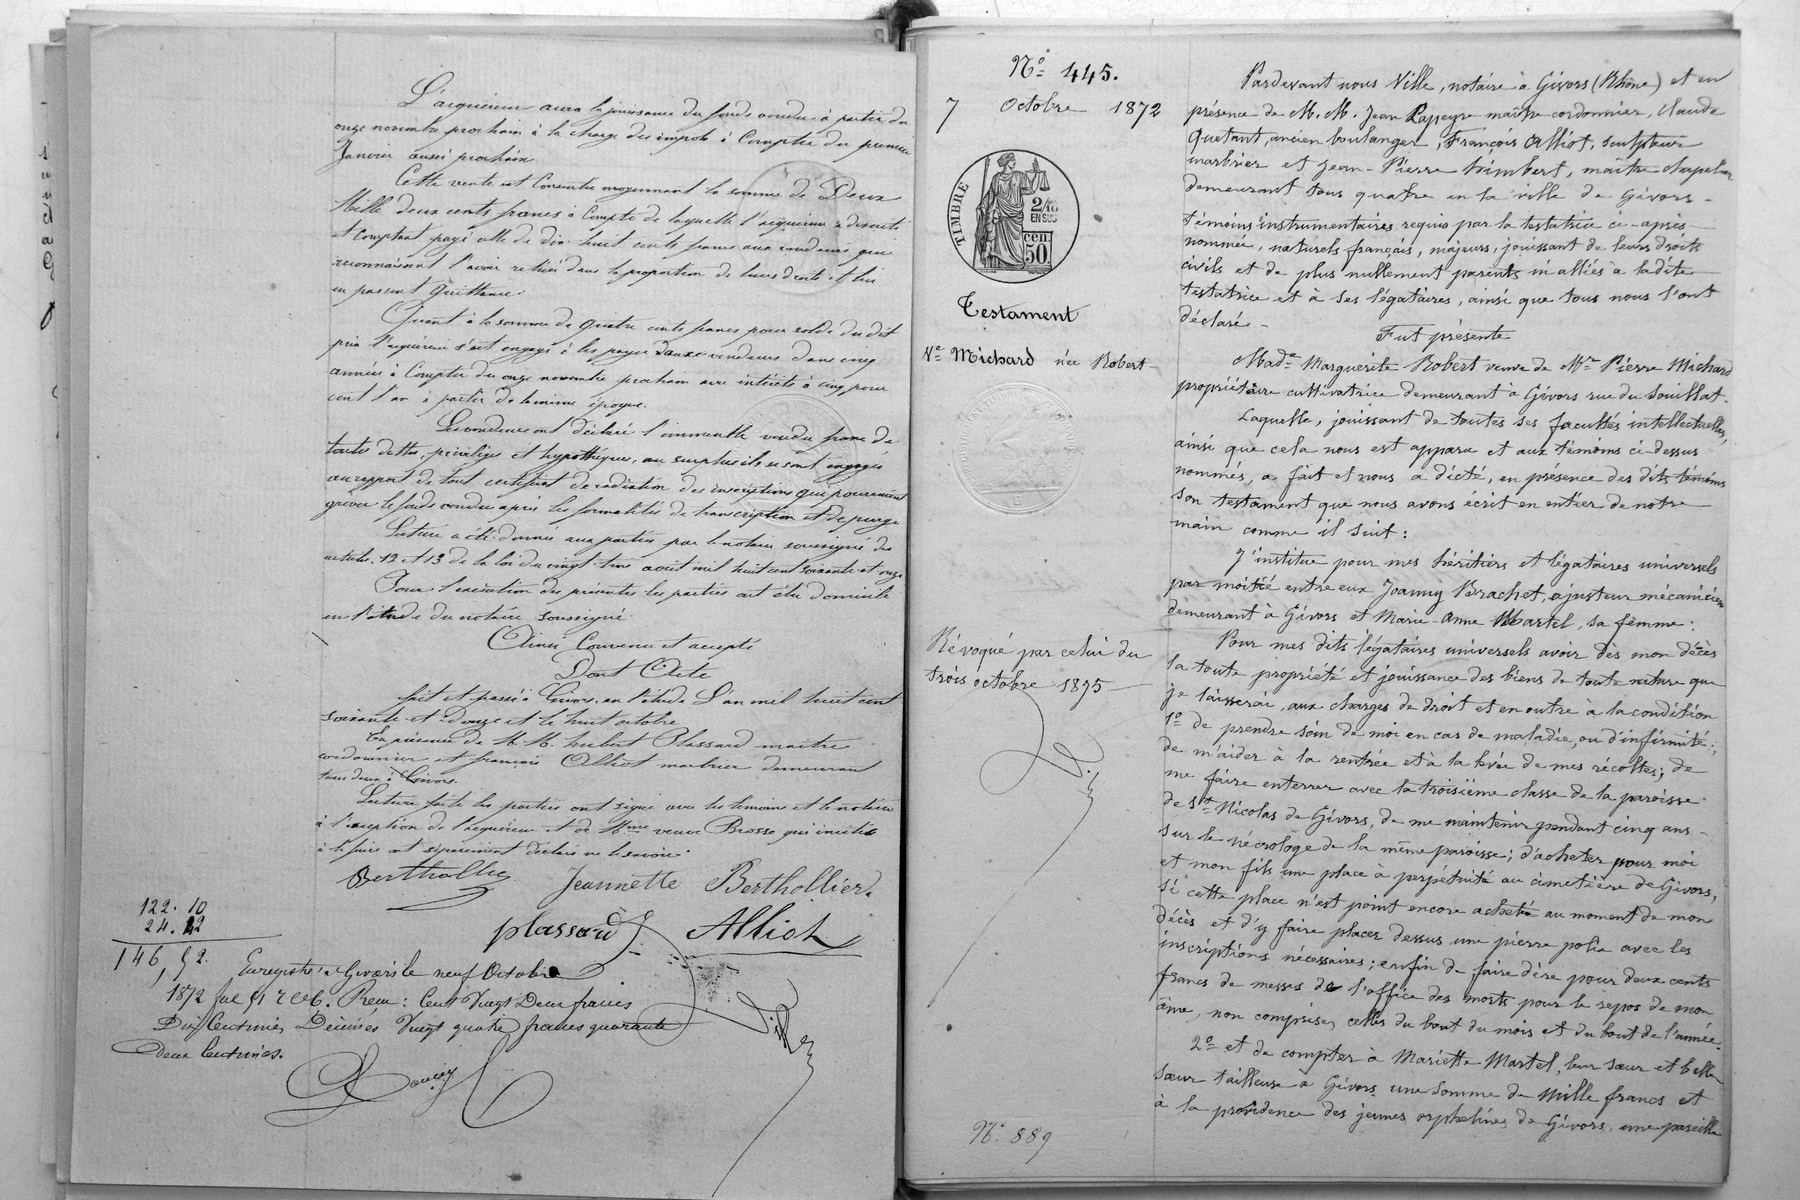 L'acquéreur aura la jouissance du fonds vendu à partir du
onze novembre prochain à la charge des impôts à Compter du premier
Janvier aussi prochain.
Cette vente est Consentie moyennant la somme de Deux
Mille deux cents francs à Compte de laquelle l'acquéreur a de suite
et comptant payé celle de dix huit cents francs aux vendeurs qui
reconnaissent l'avoir retiré dans la proportion de leurs droits et lui
en passent Quittance.
Quant à la somme de Quatre cents francs pour solde du dit
prix l'acquéreur s'est engagé à les payer aux vendeurs dans cinq
années à Compter du onze novembre prochain avec intérêts à cinq pour
cent l'an à partir de la même époque.
Les vendeurs ont déclaré l'immeuble vendu franc de
toutes dettes, privilèges et hypothèques, au surplus ils se sont engagés
au rapport de tout certificat de radiation des inscriptions qui pourraient
grever le fonds vendu après les formalités de transcription et de purge
Lecture a été donnée aux parties par le notaire soussigné des
articles 12 et 13 de la loi du vingt trois août mil huit cent soixante et onze
Pour l'exécution des présentes les parties ont élu domicile
en l'étude du notaire soussigné
Ainsi Convenu et accepté
Dont Acte
fait et passé à Givors, en l'étude L'an mil huit cent
soixante et douze et le huit octobre
En présence de M. M. hubert Plassard maître
cordonnier et françois Alliot marbrier demeurant
tous deux à Givors.
Lecture faite les parties ont signé avec les témoins et le notaire
à l'exception de l'acquéreur et de Mme veuve Brosse qui invités
à le faire ont séparément déclaré ne le savoir.
Berthollier
Jeannette Berthollier
plassard Alliot
122. 10
24. 42
146, 52.
Enregistré à Givors le neuf Octobre
1872 fol 51 R C 6. Reçu: Cent Vingt Deux francs
Dix Centimes, Décimes Vingt quatre francs quarante
Deux Centimes.
Ville
No 445.
7 Octobre 1872
TIMBRE
2/10
EN SUS
cen.
50.
Testament
Ve Michard née Robert
Révoqué par celui du
trois octobre 1875
No 889
Pardevant nous Ville, notaire à Givors (Rhône) et en
présence de M. M. Jean Papeyre maître cordonnier, Claude
Quetant, ancien boulanger, François Alliot, sculpteur
marbrier et Jean-Pierre himbert, maître chapelier
demeurant tous quatre en la ville de Givors -
témoins instrumentaires requis par la testatrice ci-après
nommée, naturels français, majeurs, jouissant de leurs droits
civils et de plus nullement parents ni alliés à ladite
testatrice et à ses légataires, ainsi que tous nous l'ont
déclaré -
Fut présente
Made Marguerite Robert veuve de Mr Pierre Michard
propriétaire cultivatrice demeurant à Givors rue du Souillat.
Laquelle, jouissant de toutes ses facultés intellectuelles,
ainsi que cela nous est apparu et aux témoins ci-dessus
nommés, a fait et nous a dicté, en présence des dits témoins
son testament que nous avons écrit en entier de notre
main comme il suit:
J'institue pour mes héritiers et légataires universels
par moitié entre eux Joanny Brachet, ajusteur mécanicien
demeurant à Givors et Marie-Anne Martel, sa femme.
Pour mes dits légataires universels avoir dès mon décès
la toute propriété et jouissance des biens de toute nature que
je laisserai, aux charges de droit et en outre à la condition
1o de prendre soin de moi en cas de maladie, ou d'infirmité;
de m'aider à la rentrée et à la levée de mes récoltes; de
me faire enterrer avec la troisième classe de la paroisse
de St Nicolas de Givors, de me maintenir pendant cinq ans -
sur le nécrologe de la même paroisse; d'acheter pour moi
et mon fils une place à perpétuité au cimetière de Givors,
si cette place n'est point encore achetée au moment de mon
décès et d'y faire placer dessus une pierre polie avec les
inscriptions nécessaires; enfin de faire dire pour deux cents
francs de messes de l'office des morts pour le repos de mon
âme, non comprises celles du bout du mois et du bout de l'année.
2o et de compter à Mariette Martel, leur sœur et belle
sœur tailleuse à Givors une somme de Mille francs et
à la providence des jeunes orphelines de Givors, une pareille